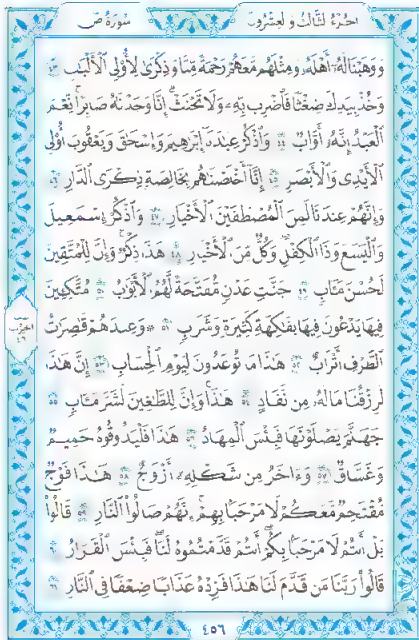 الجزء الثالث والعشرون
سورة ص
ووهبنا له أهله ومثلهم معهم رحمة منا وذكرى لأولى الألبب ٤٣
وخذ بيدك ضغثا فاضرب به ولا تحنث إنا وجدنه صابرا نعم
العبد إنه أواب ٤٤ واذكر عبدنا إبرهيم وإسحق ويعقوب أولى
الأيدى والأبصر ٤٥ إنا أخلصنهم بخالصة ذكرى الدار ٤٦
وإنهم عندنا لمن المصطفين الأخيار ٤٧ واذكر إسمعيل
واليسع وذا الكفل وكل من الأخيار ٤٨ هذا ذكر وإن للمتقين
لحسن مئاب ٤٩ جنت عدن مفتحة لهم الأبوب ٥٠ متكين
فيها يدعون فيها بفكهة كثيرة وشراب ٥١ وعندهم قصرت
الطرف أتراب ٥٢ هذا ما توعدون ليوم الحساب ٥٣ إن هذا
لرزقنا ما له من نفاد ٥٤ هذا وإن للطغين لشر مئاب ٥٥
جهنم يصلونها فبئس المهاد ٥٦ هذا فليذوقوه حميم
وغساق ٥٧ وءاخر من شكله أزوج ٥٨ هذا فوج
مقتحم معكم لا مرحبا بهم إنهم صالوا النار ٥٩ قالوا
بل أنتم لا مرحبا بكم أنتم قدمتموه لنا فبئس القرار ٦٠
قالوا ربنا من قدم لنا هذا فزده عذابا ضعفا فى النار ٦١
الحزب
٤٦
٤٥٦